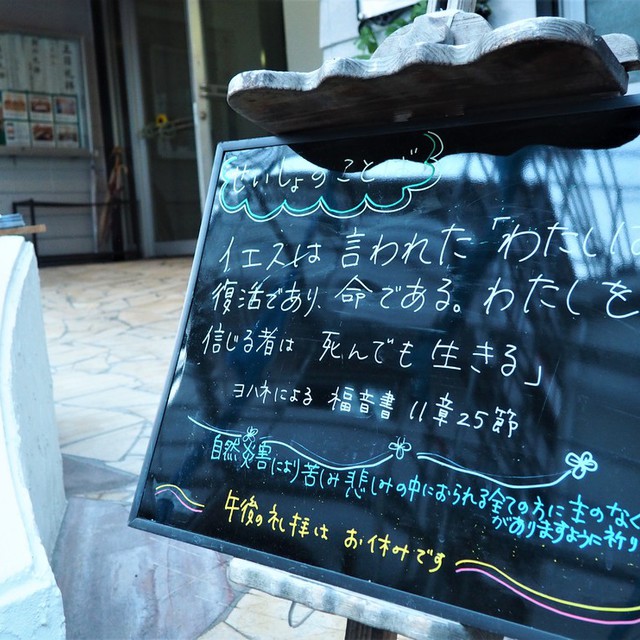 せいしょのことば
イエスは言われた「わたしは
復活であり、命である。わたしを
信じる者は 死んでも生きる」
ヨハネによる 福音書 11章25節
自然災害により苦しみ悲しみの中におられる全ての方に主のなぐ
がありますように祈り
午後の礼拝は お休みです